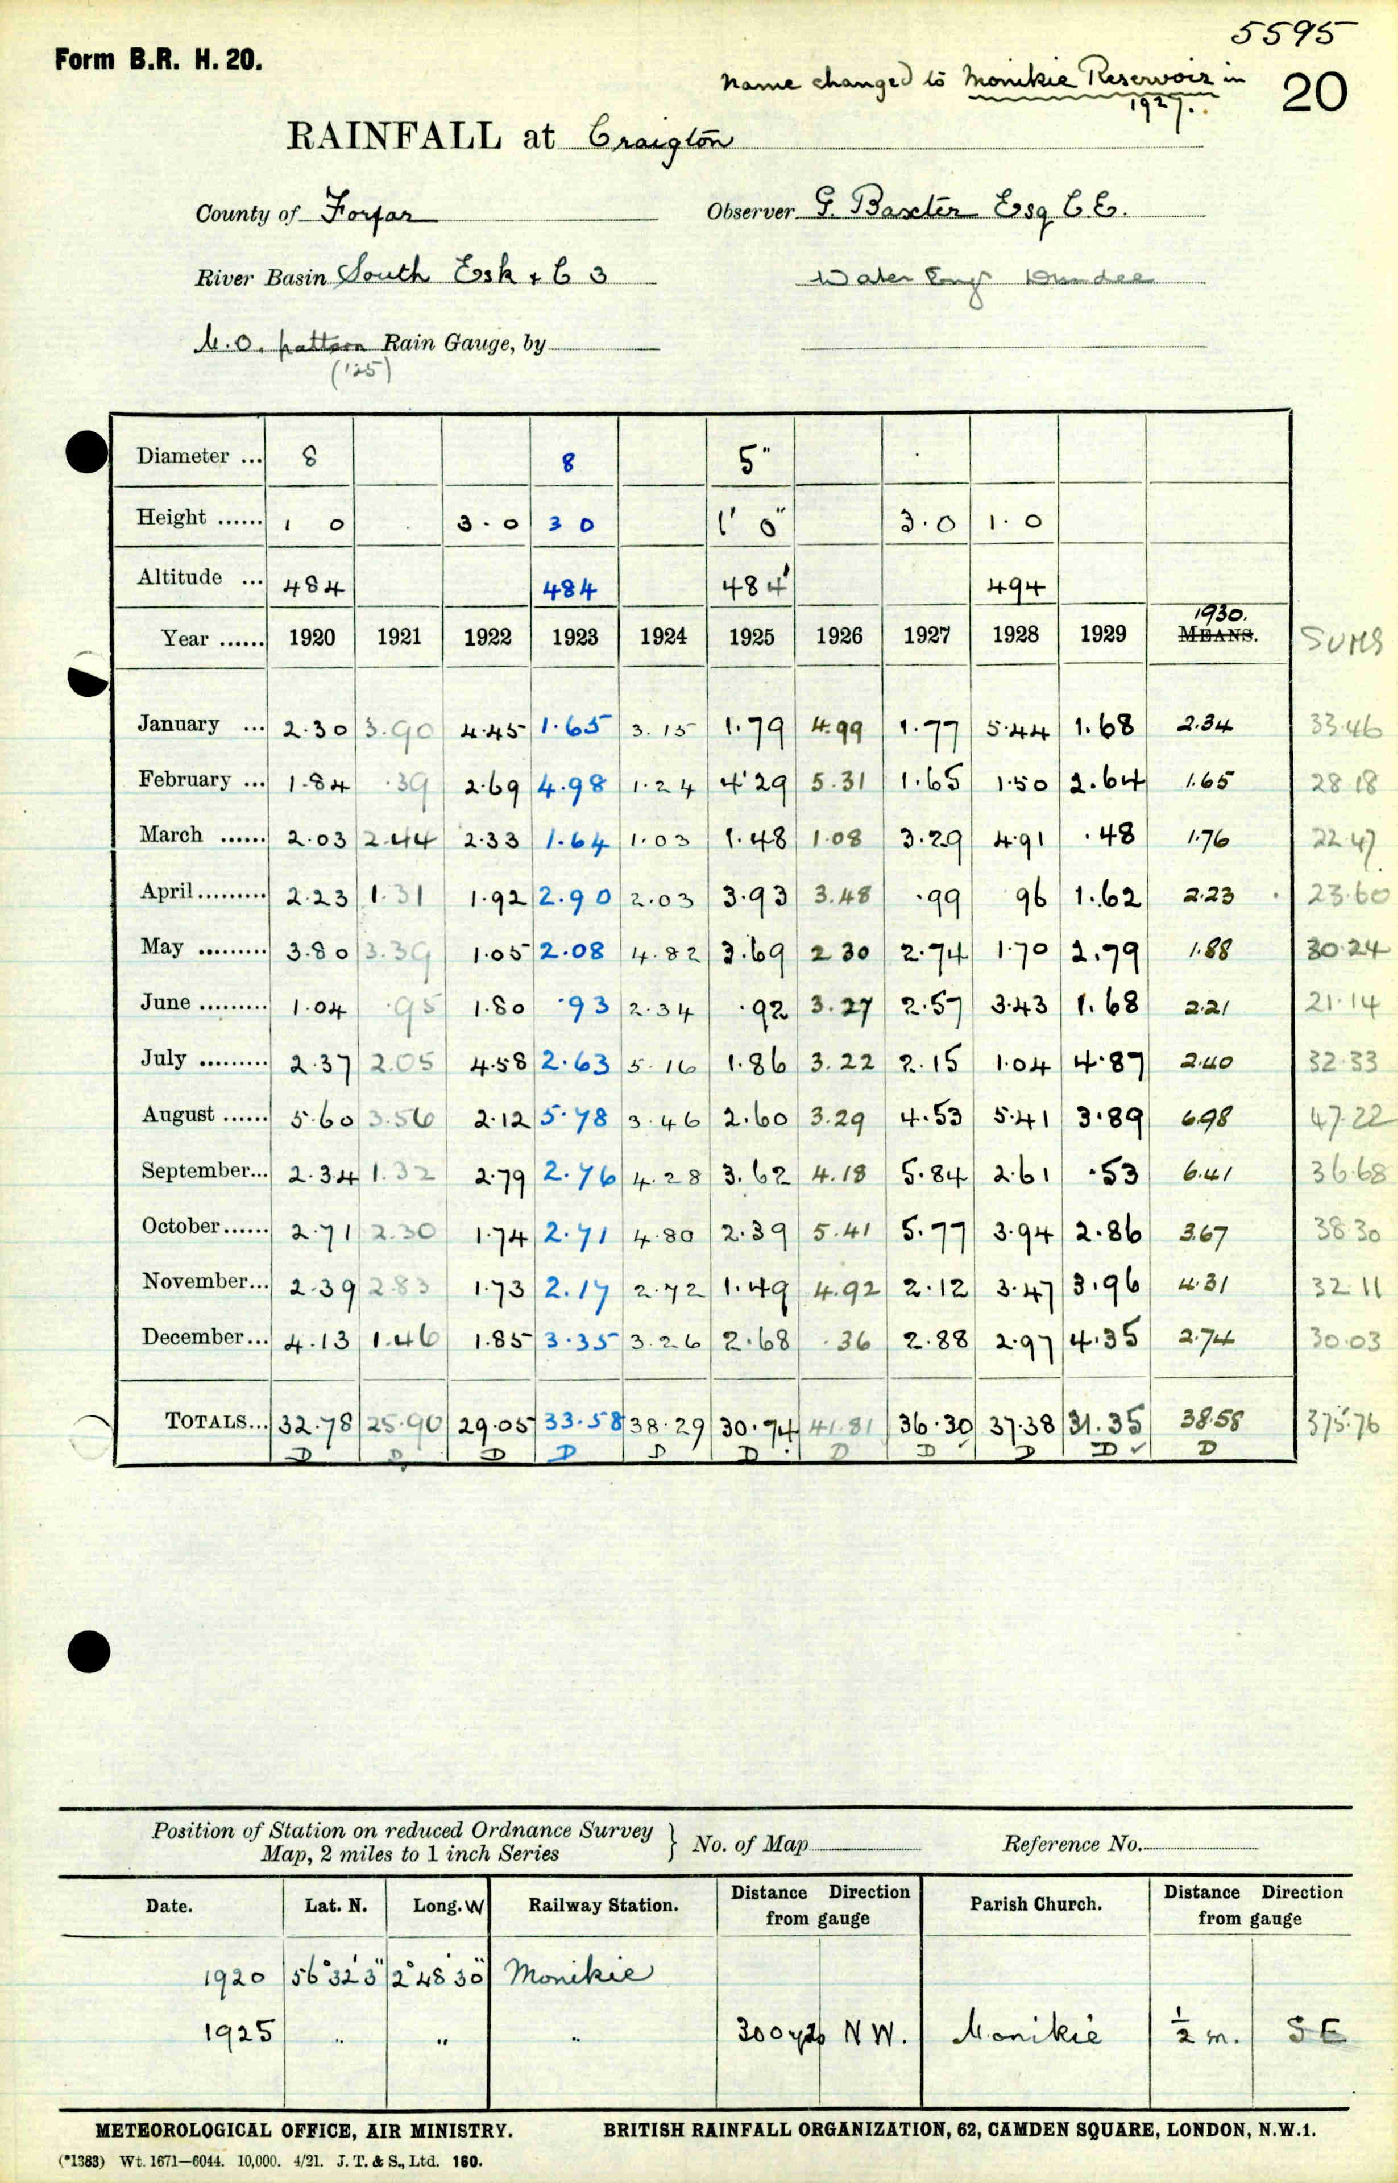 5595
Form B.R. H. 20.
Name changed to Monikie Reservoir in 1927.
20
RAINFALL at Craigton
County of Forfar Observer G. Baxter Esq C E.
River Basin South Esk + C 3 Water Eng Dundee
M.O. pattern Rain Gauge, by
('25)
Diameter ... 8 8 5"
Height ...... 1 0 3.0 3 0 1' 0" 3.0 1.0
Altitude ... 484 484 484' 494
1930.
Year ...... 1920 1921 1922 1923 1924 1925 1926 1927 1928 1929 MEANS. SUMS
January ... 2.30 3.90 4.45 1.65 3.15 1.79 4.99 1.77 5.44 1.68 2.34 33.46
February ... 1.84 .39 2.69 4.98 1.24 4.29 5.31 1.65 1.50 2.64 1.65 28.18
March ...... 2.03 2.44 2.33 1.64 1.03 1.48 1.08 3.29 4.91 .48 1.76 22.47
April ......... 2.23 1.31 1.92 2.90 2.03 3.93 3.48 .99 96 1.62 2.23 23.60
May ......... 3.80 3.39 1.05 2.08 4.82 3.69 2 30 2.74 1.70 2.79 1.88 30.24
June ......... 1.04 .95 1.80 .93 2.34 .92 3.27 2.57 3.43 1.68 2.21 21.14
July ......... 2.37 2.05 4.58 2.63 5.16 1.86 3.22 2.15 1.04 4.87 2.40 32.33
August ...... 5.60 3.56 2.12 5.78 3.46 2.60 3.29 4.53 5.41 3.89 6.98 47.22
September... 2.34 1.32 2.79 2.76 4.28 3.62 4.18 5.84 2.61 .53 6.41 36.68
October...... 2.71 2.30 1.74 2.71 4.80 2.39 5.41 5.77 3.94 2.86 3.67 38.30
November... 2.39 2.83 1.73 2.17 2.72 1.49 4.92 2.12 3.47 3.96 4.31 32.11
December... 4.13 1.46 1.85 3.35 3.26 2.68 .36 2.88 2.97 4.35 2.74 30.03
TOTALS... 32.78 25.90 29.05 33.58 38.29 30.74 41.81 36.30 37.38 31.35 38.58 375.76
D D D D D D D D ✓ D D ✓ D
Position of Station on reduced Ordnance Survey Map, 2 miles to 1 inch Series } No. of Map Reference No.
Date. Lat. N. Long. W Railway Station. Distance Direction from gauge Parish Church. Distance Direction from gauge
1920 56° 32' 3" 2° 48' 30" Monikie
1925 " " " 300 yds N W. Monikie ½ m. S E
METEOROLOGICAL OFFICE, AIR MINISTRY. BRITISH RAINFALL ORGANIZATION, 62, CAMDEN SQUARE, LONDON, N.W.1.
(*1383) Wt. 1671—6044. 10,000. 4/21. J. T. & S., Ltd. 160.